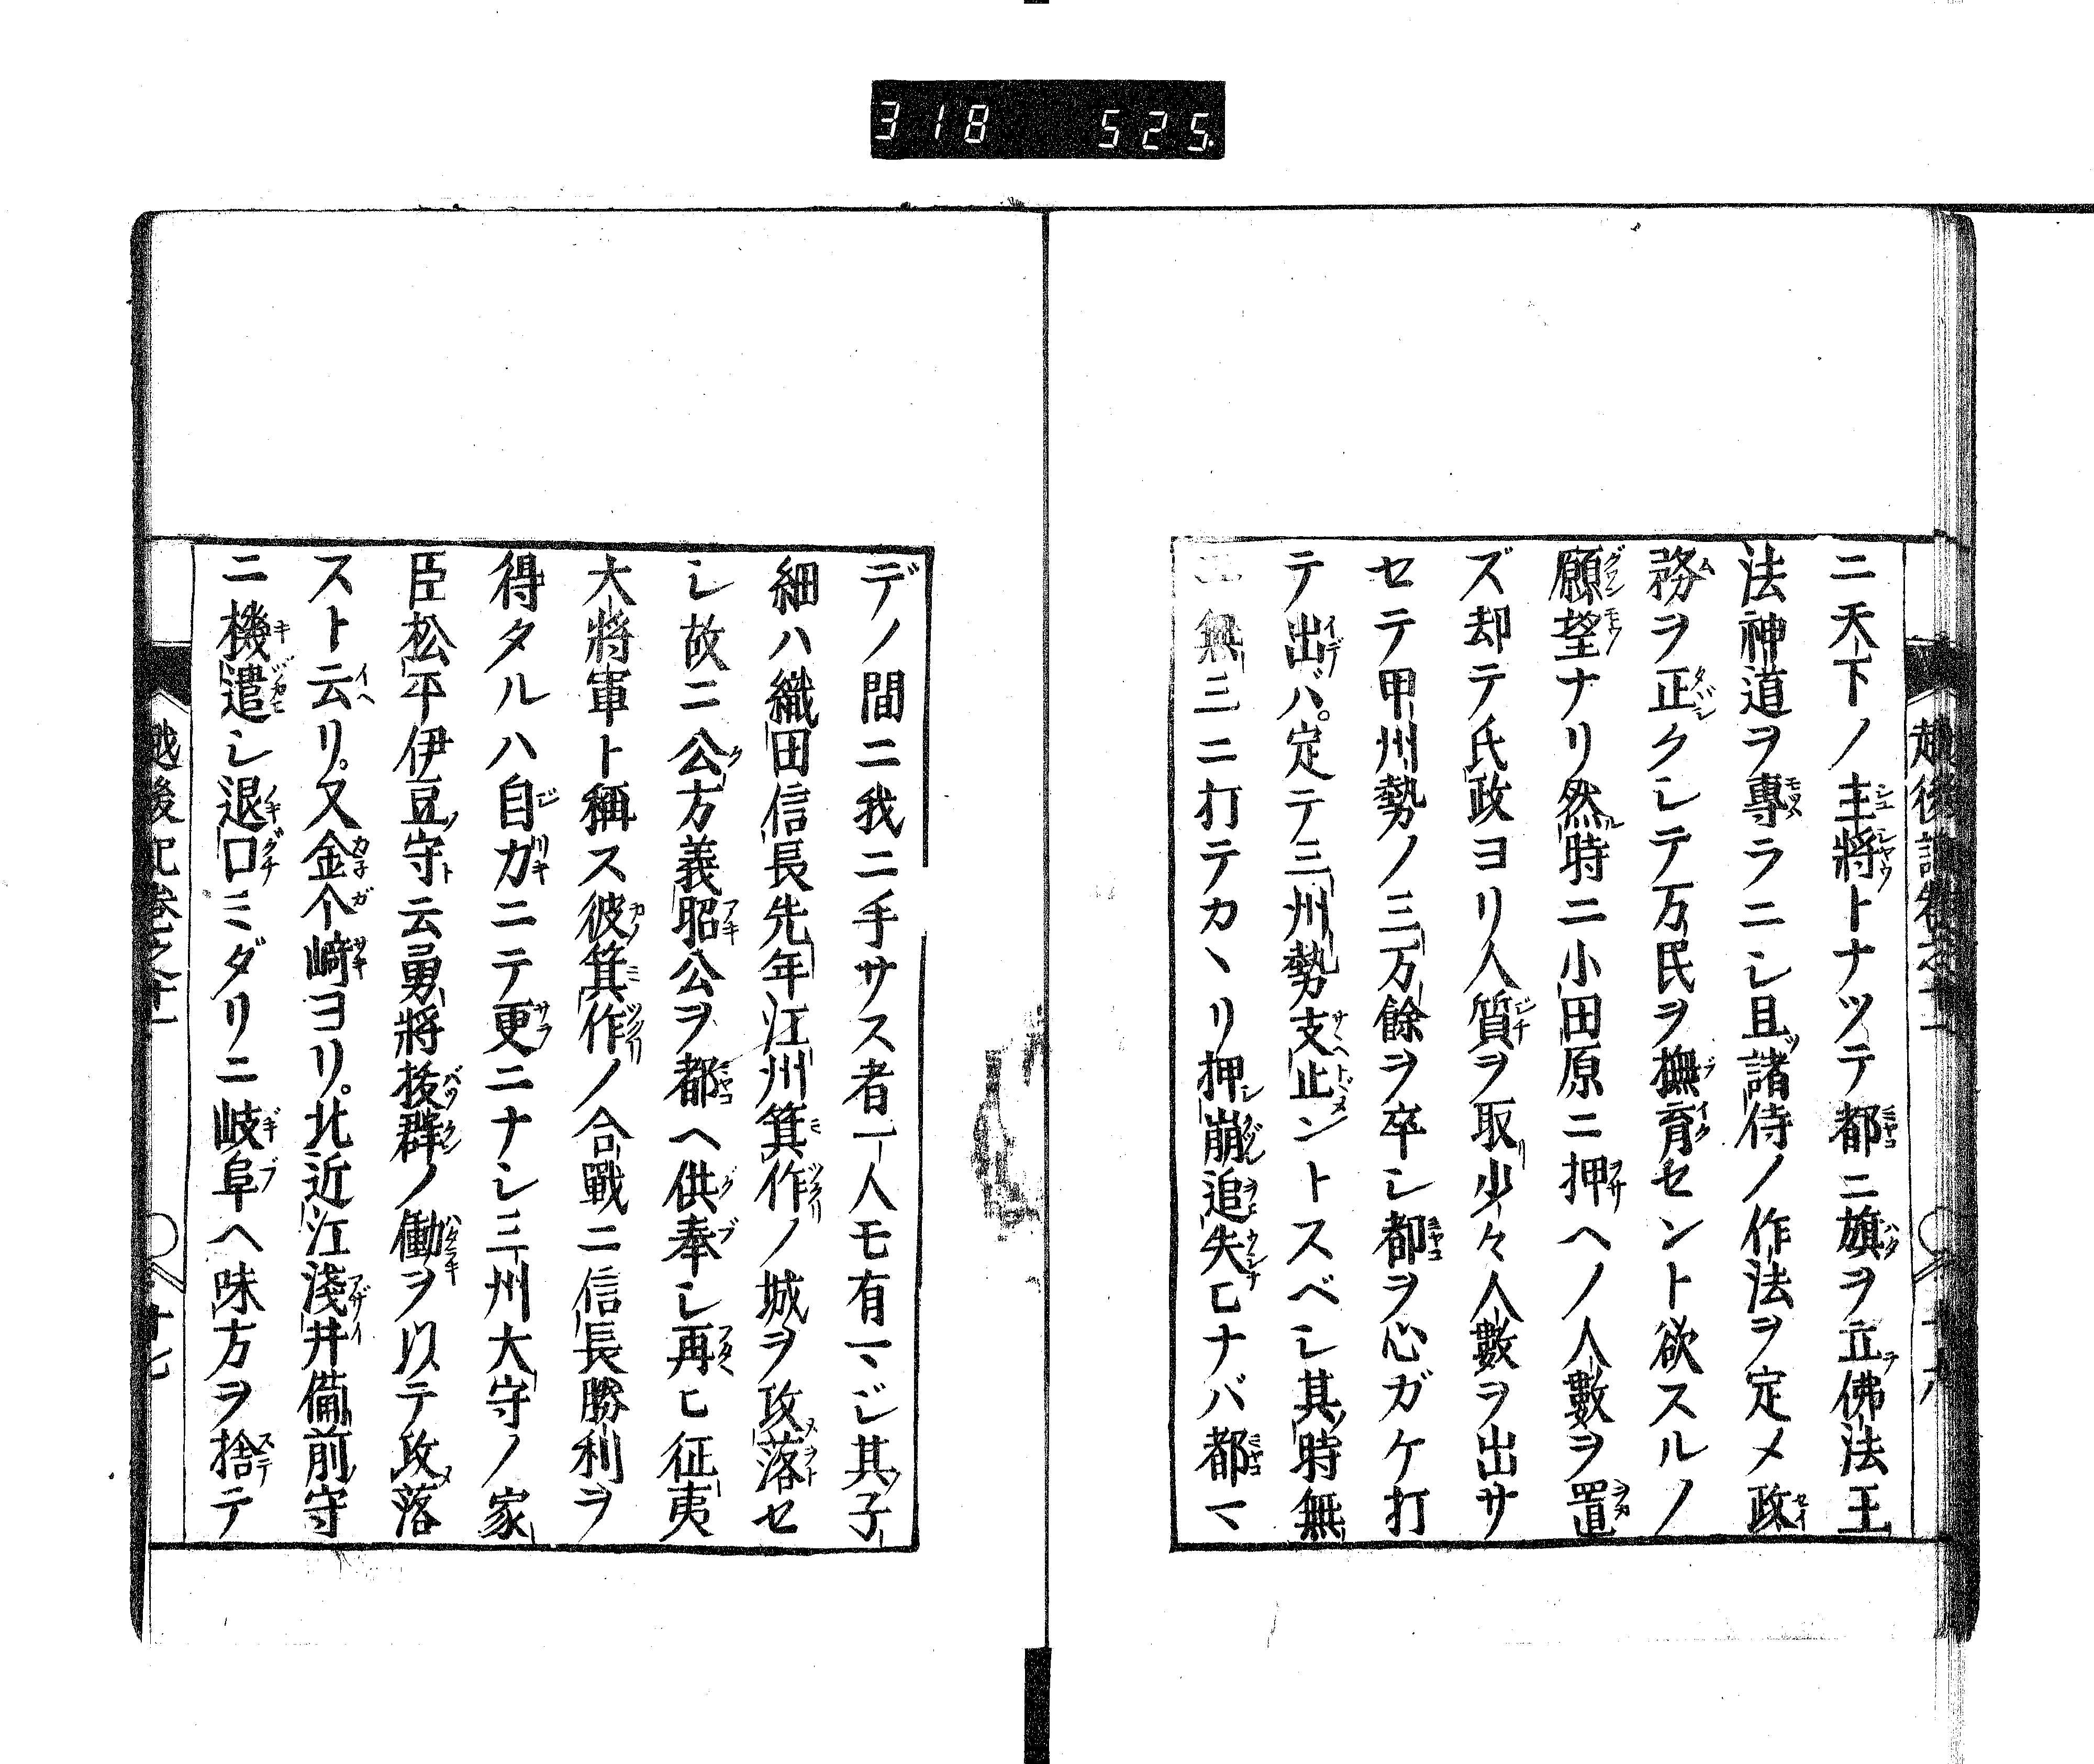 318 525
ニ天下ノ主將トナツテ都ニ旗ヲ立佛法王
法神道ヲ專ラニシ且諸侍ノ作法ヲ定メ政
務ヲ正クシテ万民ヲ撫育セント欲スルノ
願望ナリ然時ニ小田原ニ押ヘノ人數ヲ置
ズ却テ氏政ヨリ人質ヲ取少々人數ヲ出サ
セテ甲州勢ノ三万餘ヲ卒シ都ヲ心ガケ打
テ出バ。定テ三州勢支止ントスベシ其時無
二無三ニ打テカヽリ押崩追失ヒナバ都マ
デノ間ニ我ニ手サス者一人モ有マジ其子
細ハ織田信長先年江州箕作ノ城ヲ攻落セ
シ故ニ公方義昭公ヲ都ヘ供奉シ再ヒ征夷
大將軍ト稱ス彼箕作ノ合戰ニ信長勝利ヲ
得タルハ自力ニテ更ニナシ三州大守ノ家
臣松平伊豆守ト云勇將拔群ノ働ヲ以テ攻落
スト云リ。又金个﨑ヨリ。北近江淺井備前守
ニ機遣シ退口ミダリニ岐阜ヘ味方ヲ捨テ
越後記卷之十一 十七